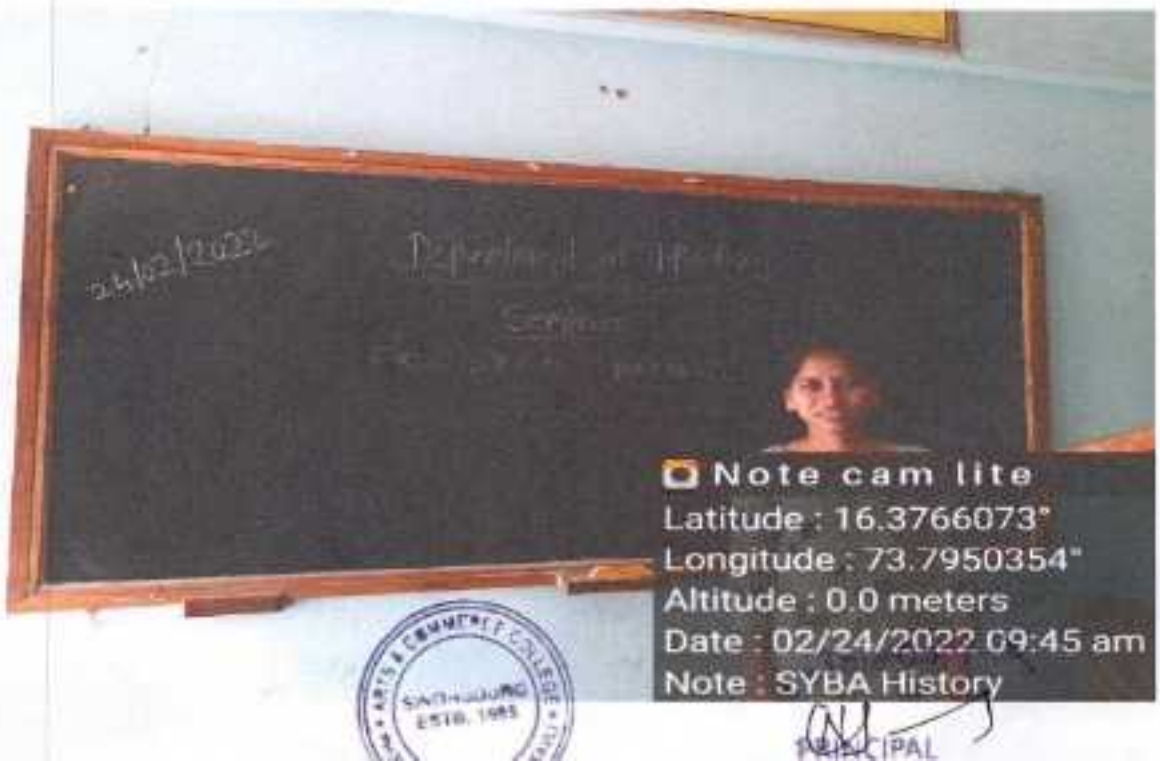 24/02/2022
Department of History
Seminar
Note cam lite
Latitude : 16.3766073°
Longitude : 73.7950354°
Altitude : 0.0 meters
Date : 02/24/2022 09:45 am
Note : SYBA History
ARTS & COMMERCE COLLEGE
SINDHUDURG
ESTD. 1985
PRINCIPAL